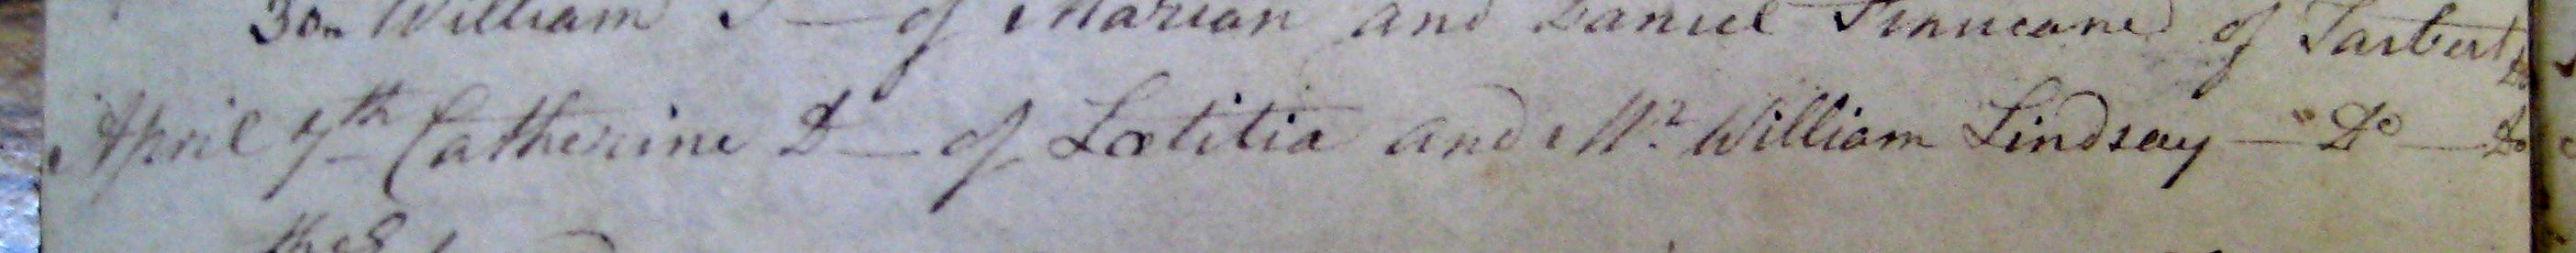 30th William S— of Marian and Daniel Finucane of Tarbert Do
April 7th Catherine D— of Lœtitia and Mr. William Lindsay — Do — Do